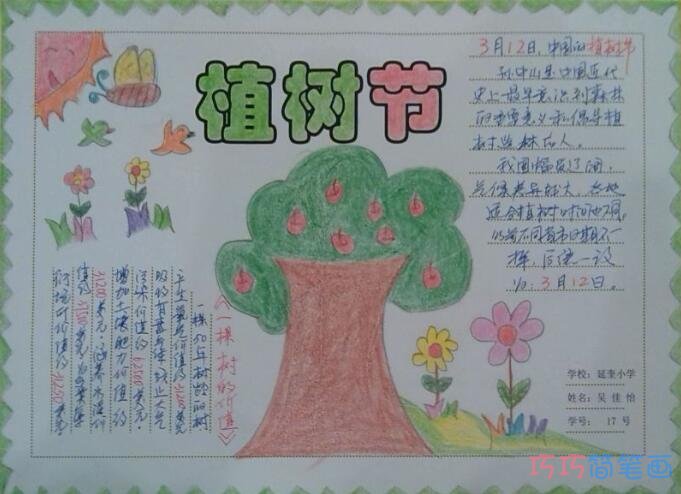 植树节
3月12日,中国的植树节
孙中山是中国近代
史上最早意识到森林
的重要意义和倡导植
树造林的人。
我国幅员辽阔,
气候差异较大,各地
适合植树时间也不同,
以前不同省市日期不一
样,后统一设
为:3月12日。
《一棵树的价值》
一棵50年树龄的树
平生氧气价值约31200美元
吸收有毒气体,防止大气
污染价值约62500美元;
增加土壤肥力价值约
31200美元;涵养水源价
值约37500美元;为鸟类繁
衍场所价值约31250美元
学校:延奎小学
姓名:吴佳怡
学号: 17号
巧巧简笔画